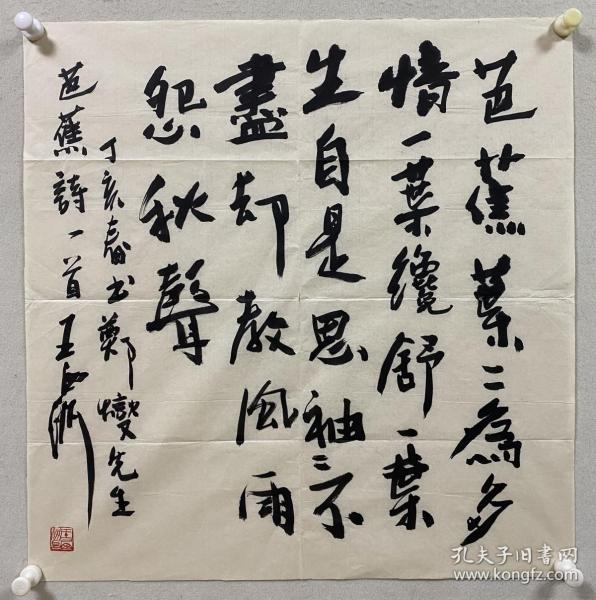 芭蕉葉〻為多
情一葉纔舒一葉
生自是思袖〻不
盡却教風雨
怨秋聲
丁亥春书鄭燮先生
芭蕉詩一首王
孔夫子旧书网
www.kongfz.com